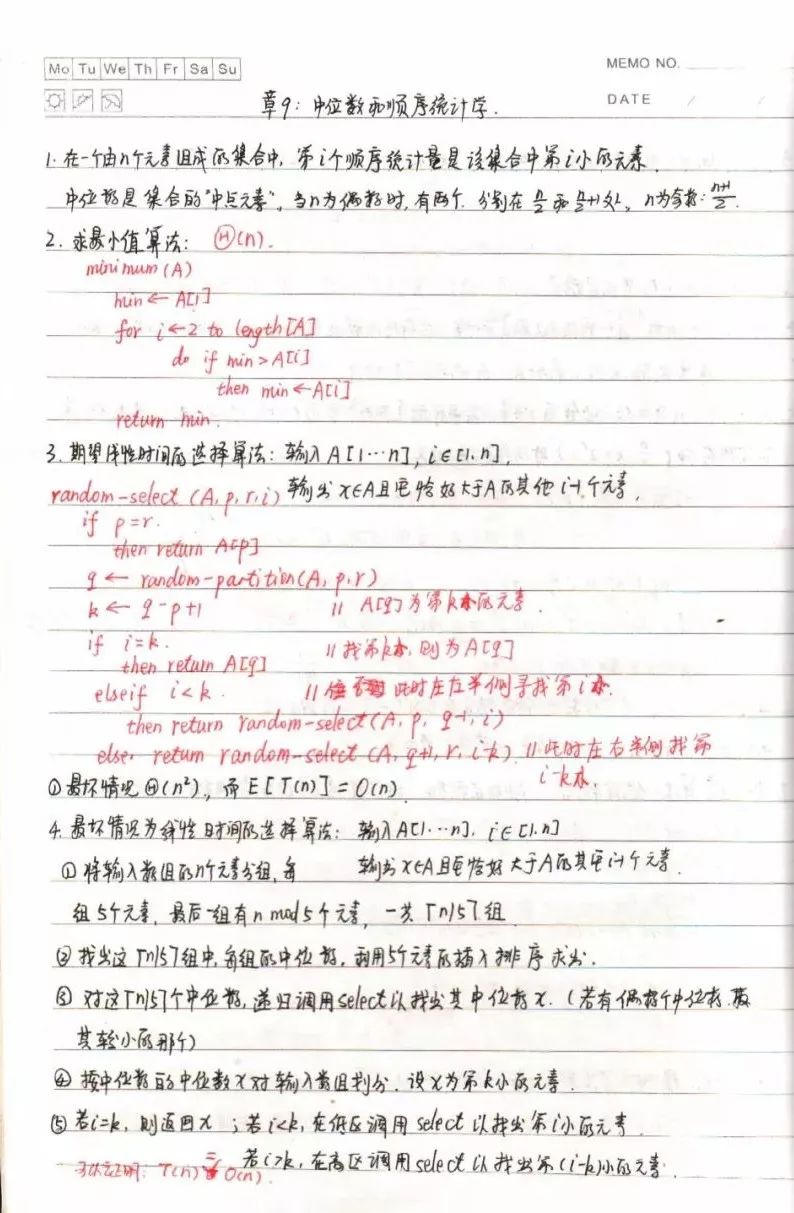 Mo Tu We Th Fr Sa Su
MEMO NO.
DATE / /
章9: 中位数和顺序统计学.
1. 在一个由n个元素组成的集合中, 第i个顺序统计量是该集合中第i小的元素.
中位数是集合的"中点元素", 当n为偶数时, 有两个. 分别在 n/2 和 n/2+1处, n为奇数: (n+1)/2.
2. 求最小值算法: Θ(n).
minimum(A)
min ← A[1]
for i←2 to length[A]
do if min > A[i]
then min ← A[i]
return min.
3. 期望线性时间的选择算法: 输入 A[1…n], i∈[1,n],
random-select (A, p, r, i) 输出 x∈A且它恰好大于A的其他 i-1个元素.
if p=r.
then return A[p]
q ← random-partition(A, p, r)
k ← q-p+1 // A[q]为第k小的元素.
if i=k. // 找第k小, 则为A[q]
then return A[q]
elseif i<k. // 此时在左半侧寻找第i小.
then return random-select(A, p, q-1, i)
else. return random-select (A, q+1, r, i-k). // 此时在右半侧找第
i-k小.
① 最坏情况 Θ(n²), 而 E[T(n)] = O(n).
4. 最坏情况为线性时间的选择算法: 输入A[1…n]. i∈[1,n]
① 将输入数组的n个元素分组, 每 输出 x∈A且它恰好大于A的其它i-1个元素.
组5个元素, 最后一组有 n mod 5个元素, 一共⌈n/5⌉组
② 找出这⌈n/5⌉组中, 每组的中位数, 利用5个元素的插入排序求出.
③ 对这⌈n/5⌉个中位数, 递归调用select以找出其中位数x. (若有偶数个中位数, 取
其较小的那个)
④ 按中位数的中位数x对输入数组划分. 设x为第k小的元素.
⑤ 若i=k, 则返回x ; 若i<k, 在低区调用select 以找出第i小的元素.
若i>k, 在高区调用select以找出第(i-k)小的元素.
可以证明: T(n) = O(n).